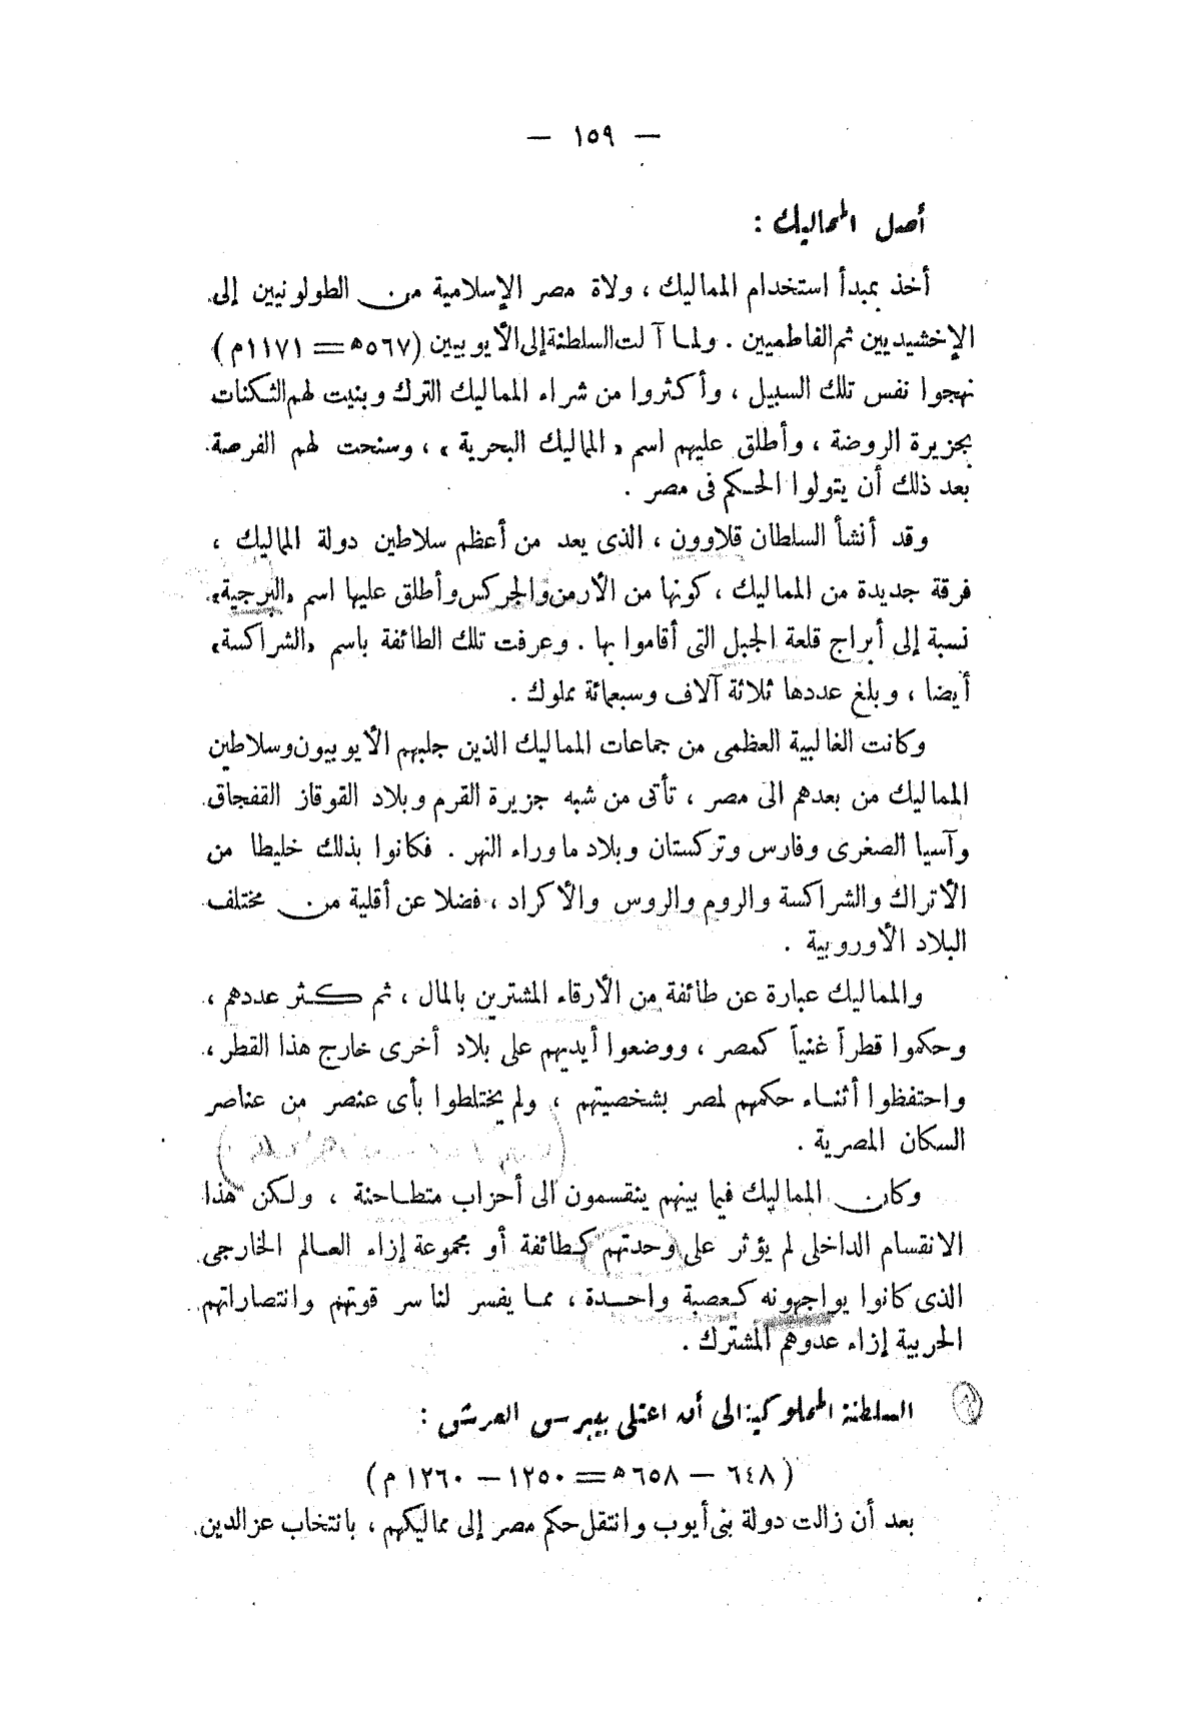 — ١٥٩ —
أصل المماليك :
أخذ بمبدأ استخدام المماليك ، ولاة مصر الإسلامية من الطولونيين إلى
الإخشيديين ثم الفاطميين . ولما آلت السلطنة إلى الأيوبيين (٥٦٧ه‍ = ١١٧١م)
نهجوا نفس تلك السبيل ، وأكثروا من شراء المماليك الترك وبنيت لهم الثكنات
بجزيرة الروضة ، وأطلق عليهم اسم «المماليك البحرية» ، وسنحت لهم الفرصة
بعد ذلك أن يتولوا الحكم فى مصر .
وقد أنشأ السلطان قلاوون ، الذى يعد من أعظم سلاطين دولة المماليك ،
فرقة جديدة من المماليك ، كونها من الأرمن والجركس وأطلق عليها اسم «البرجية»
نسبة إلى أبراج قلعة الجبل التى أقاموا بها . وعرفت تلك الطائفة باسم «الشراكسة»
أيضا ، وبلغ عددها ثلاثة آلاف وسبعمائة مملوك .
وكانت الغالبية العظمى من جماعات المماليك الذين جلبهم الأيوبيون وسلاطين
المماليك من بعدهم الى مصر ، تأتى من شبه جزيرة القرم وبلاد القوقاز القفجاق
وآسيا الصغرى وفارس وتركستان وبلاد ما وراء النهر . فكانوا بذلك خليطا من
الأتراك والشراكسة والروم والروس والأكراد ، فضلا عن أقلية من مختلف
البلاد الأوروبية .
والمماليك عبارة عن طائفة من الأرقاء المشترين بالمال ، ثم كثر عددهم ،
وحكموا قطراً غنياً كمصر ، ووضعوا أيديهم على بلاد أخرى خارج هذا القطر ،
واحتفظوا أثناء حكمهم لمصر بشخصيتهم ، ولم يختلطوا بأى عنصر من عناصر
السكان المصرية .
وكان المماليك فيما بينهم ينقسمون الى أحزاب متطاحنة ، ولكن هذا
الانقسام الداخلى لم يؤثر على وحدتهم كطائفة أو مجموعة إزاء العالم الخارجى
الذى كانوا يواجهونه كعصبة واحدة ، مما يفسر لنا سر قوتهم وانتصاراتهم
الحربية إزاء عدوهم المشترك .
السلطنة المملوكية الى أن اعتلى بيبرس العرش :
(٦٤٨ — ٦٥٨ه‍ = ١٢٥٠ — ١٢٦٠ م)
بعد أن زالت دولة بنى أيوب وانتقل حكم مصر إلى مماليكهم ، بانتخاب عز الدين